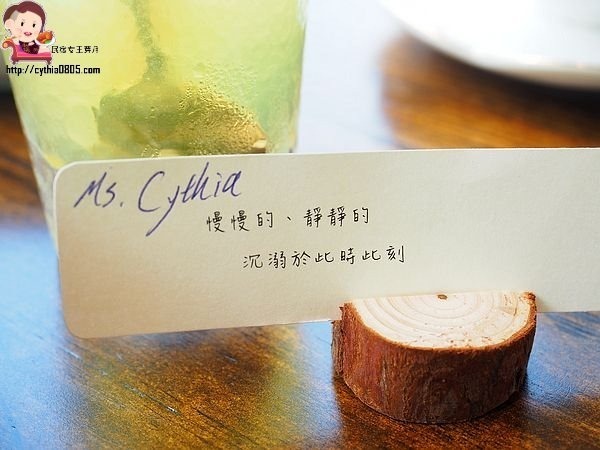 民宿女王芽月
http://cythia0805.com
Ms. Cythia
慢慢的、靜靜的
沉溺於此時此刻